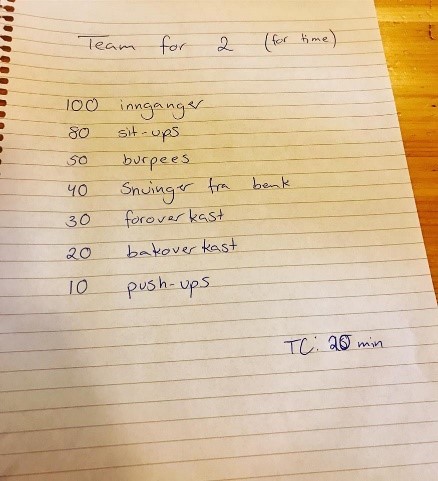 Team for 2 (for time)
100 innganger
80 sit-ups
50 burpees
40 Snuinger fra benk
30 forover kast
20 bakover kast
10 push-ups
TC: min